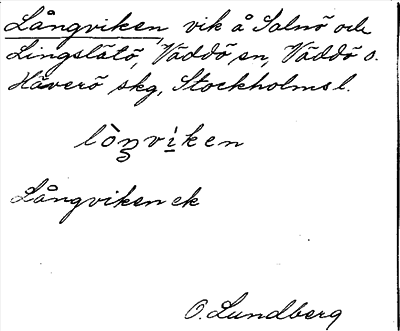 Långviken, vik å Salnö och
Lingslätö, Väddö sn, Väddö o.
Häverö skg, Stockholms l.
lòn̠vi̠ken
Långviken ek
O. Lundberg